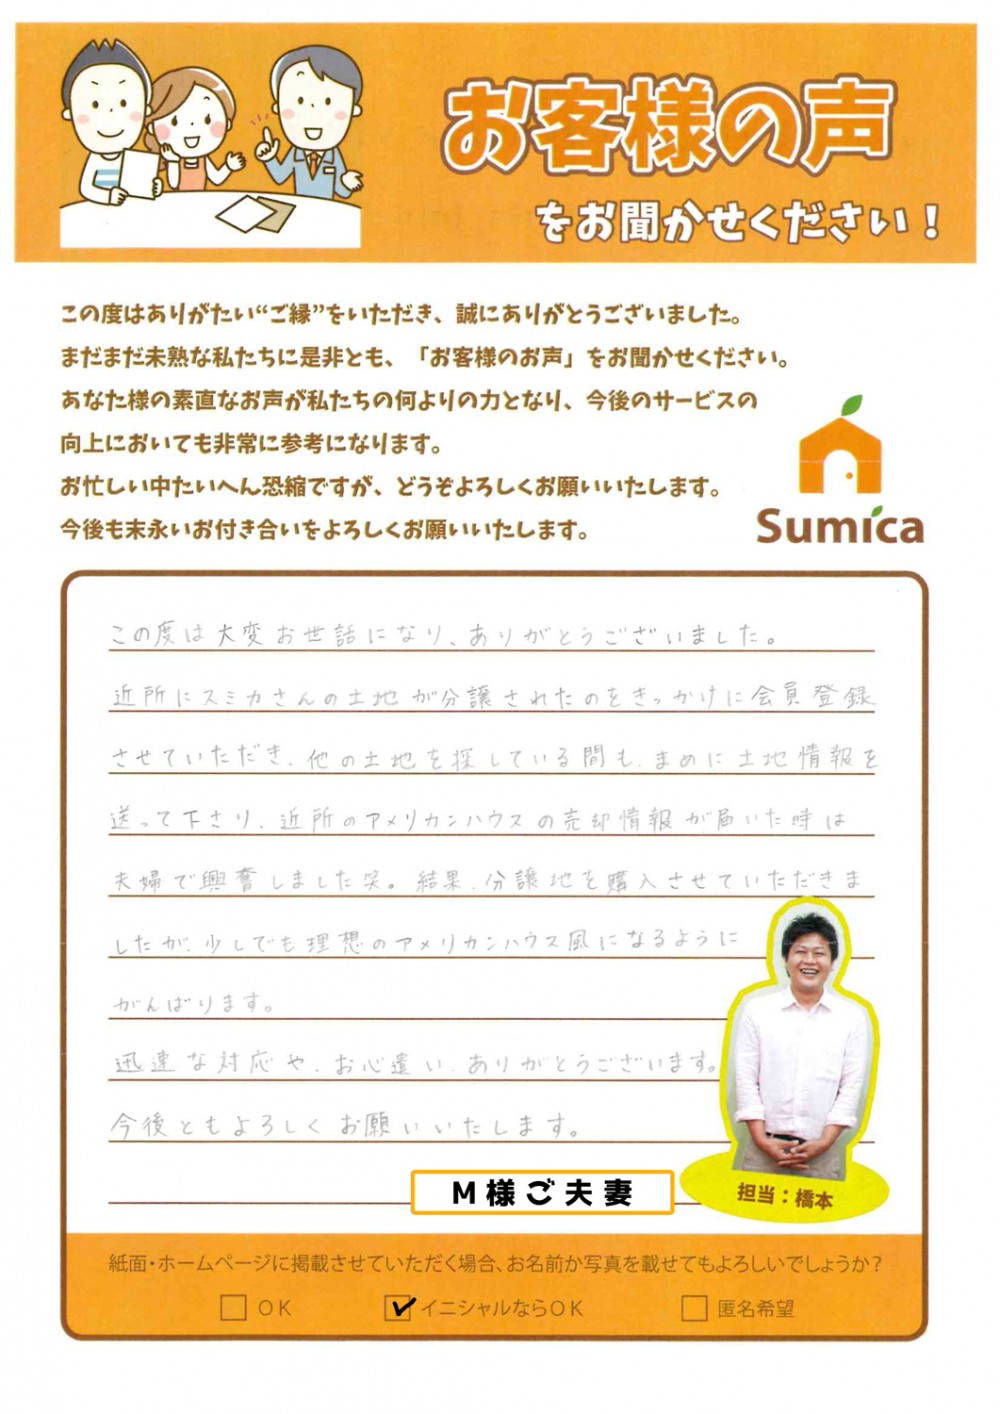 お客様の声
をお聞かせください！
この度はありがたい“ご縁”をいただき、誠にありがとうございました。
まだまだ未熟な私たちに是非とも、「お客様のお声」をお聞かせください。
あなた様の素直なお声が私たちの何よりの力となり、今後のサービスの
向上においても非常に参考になります。
お忙しい中たいへん恐縮ですが、どうぞよろしくお願いいたします。
今後も末永いお付き合いをよろしくお願いいたします。
Sumica
この度は大変お世話になり、ありがとうございました。
近所にスミカさんの土地が分譲されたのをきっかけに会員登録
させていただき、他の土地を探している間も、まめに土地情報を
送って下さり、近所のアメリカンハウスの売却情報が届いた時は
夫婦で興奮しました笑。結果、分譲地を購入させていただきま
したが、少しでも理想のアメリカンハウス風になるように
がんばります。
迅速な対応や、お心遣い、ありがとうございます。
今後ともよろしくお願いいたします。
M様ご夫妻
担当：橋本
紙面・ホームページに掲載させていただく場合、お名前か写真を載せてもよろしいでしょうか？
OK
イニシャルならOK
匿名希望